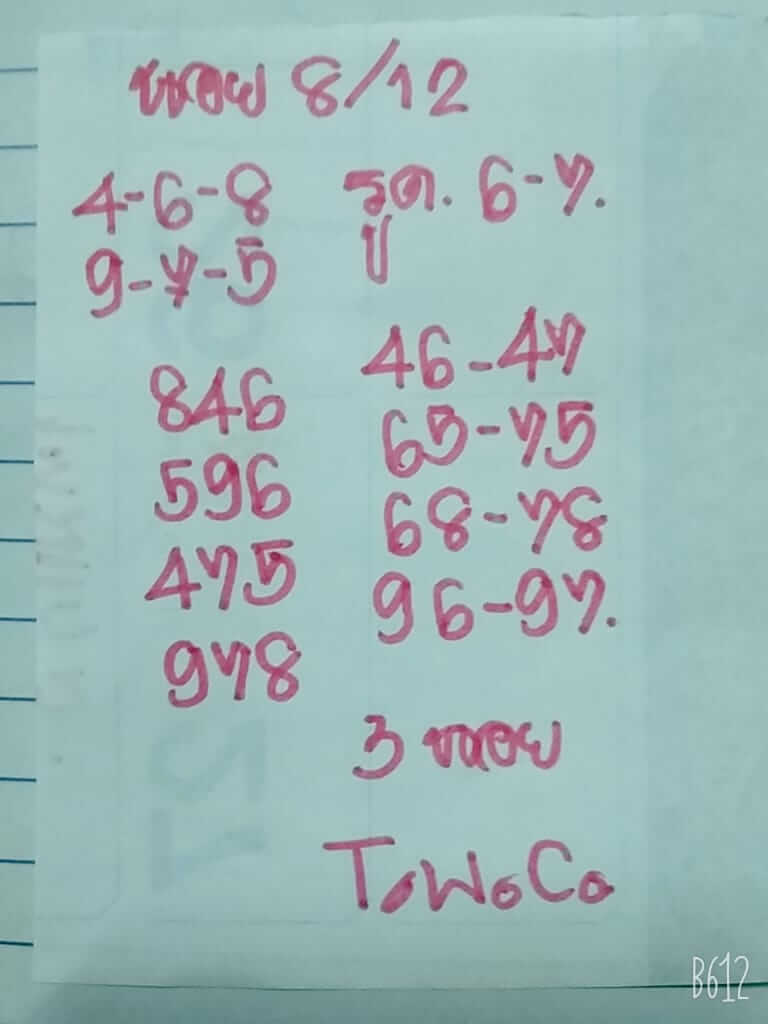 หฺอย 8/12
4-6-8 รูด. 6-7.
9-7-5 ปู
846 46-47
596 65-75
475 68-78
978 96-97.
3 หอย
T.W.C.
B612